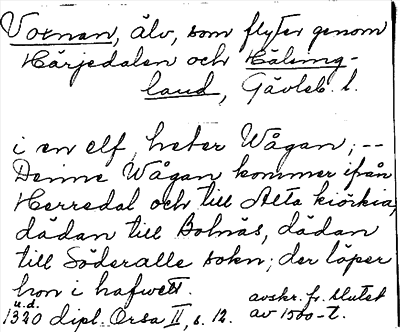 Voxnan, älv, som flyter genom
Härjedalen och Hälsing-
land, Gävleb. l.
i en elf, heter Wågan; --
Denne Wågan kommer ifrån
Herredal och till Alta kiörkia,
dädan till Bolnäs, dädan
till Söderalle sokn; der löper
hon i hafwett.
u.d.
1320 dipl. Orsa II, s. 12.
avskr. fr. slutet
av 1500-t.